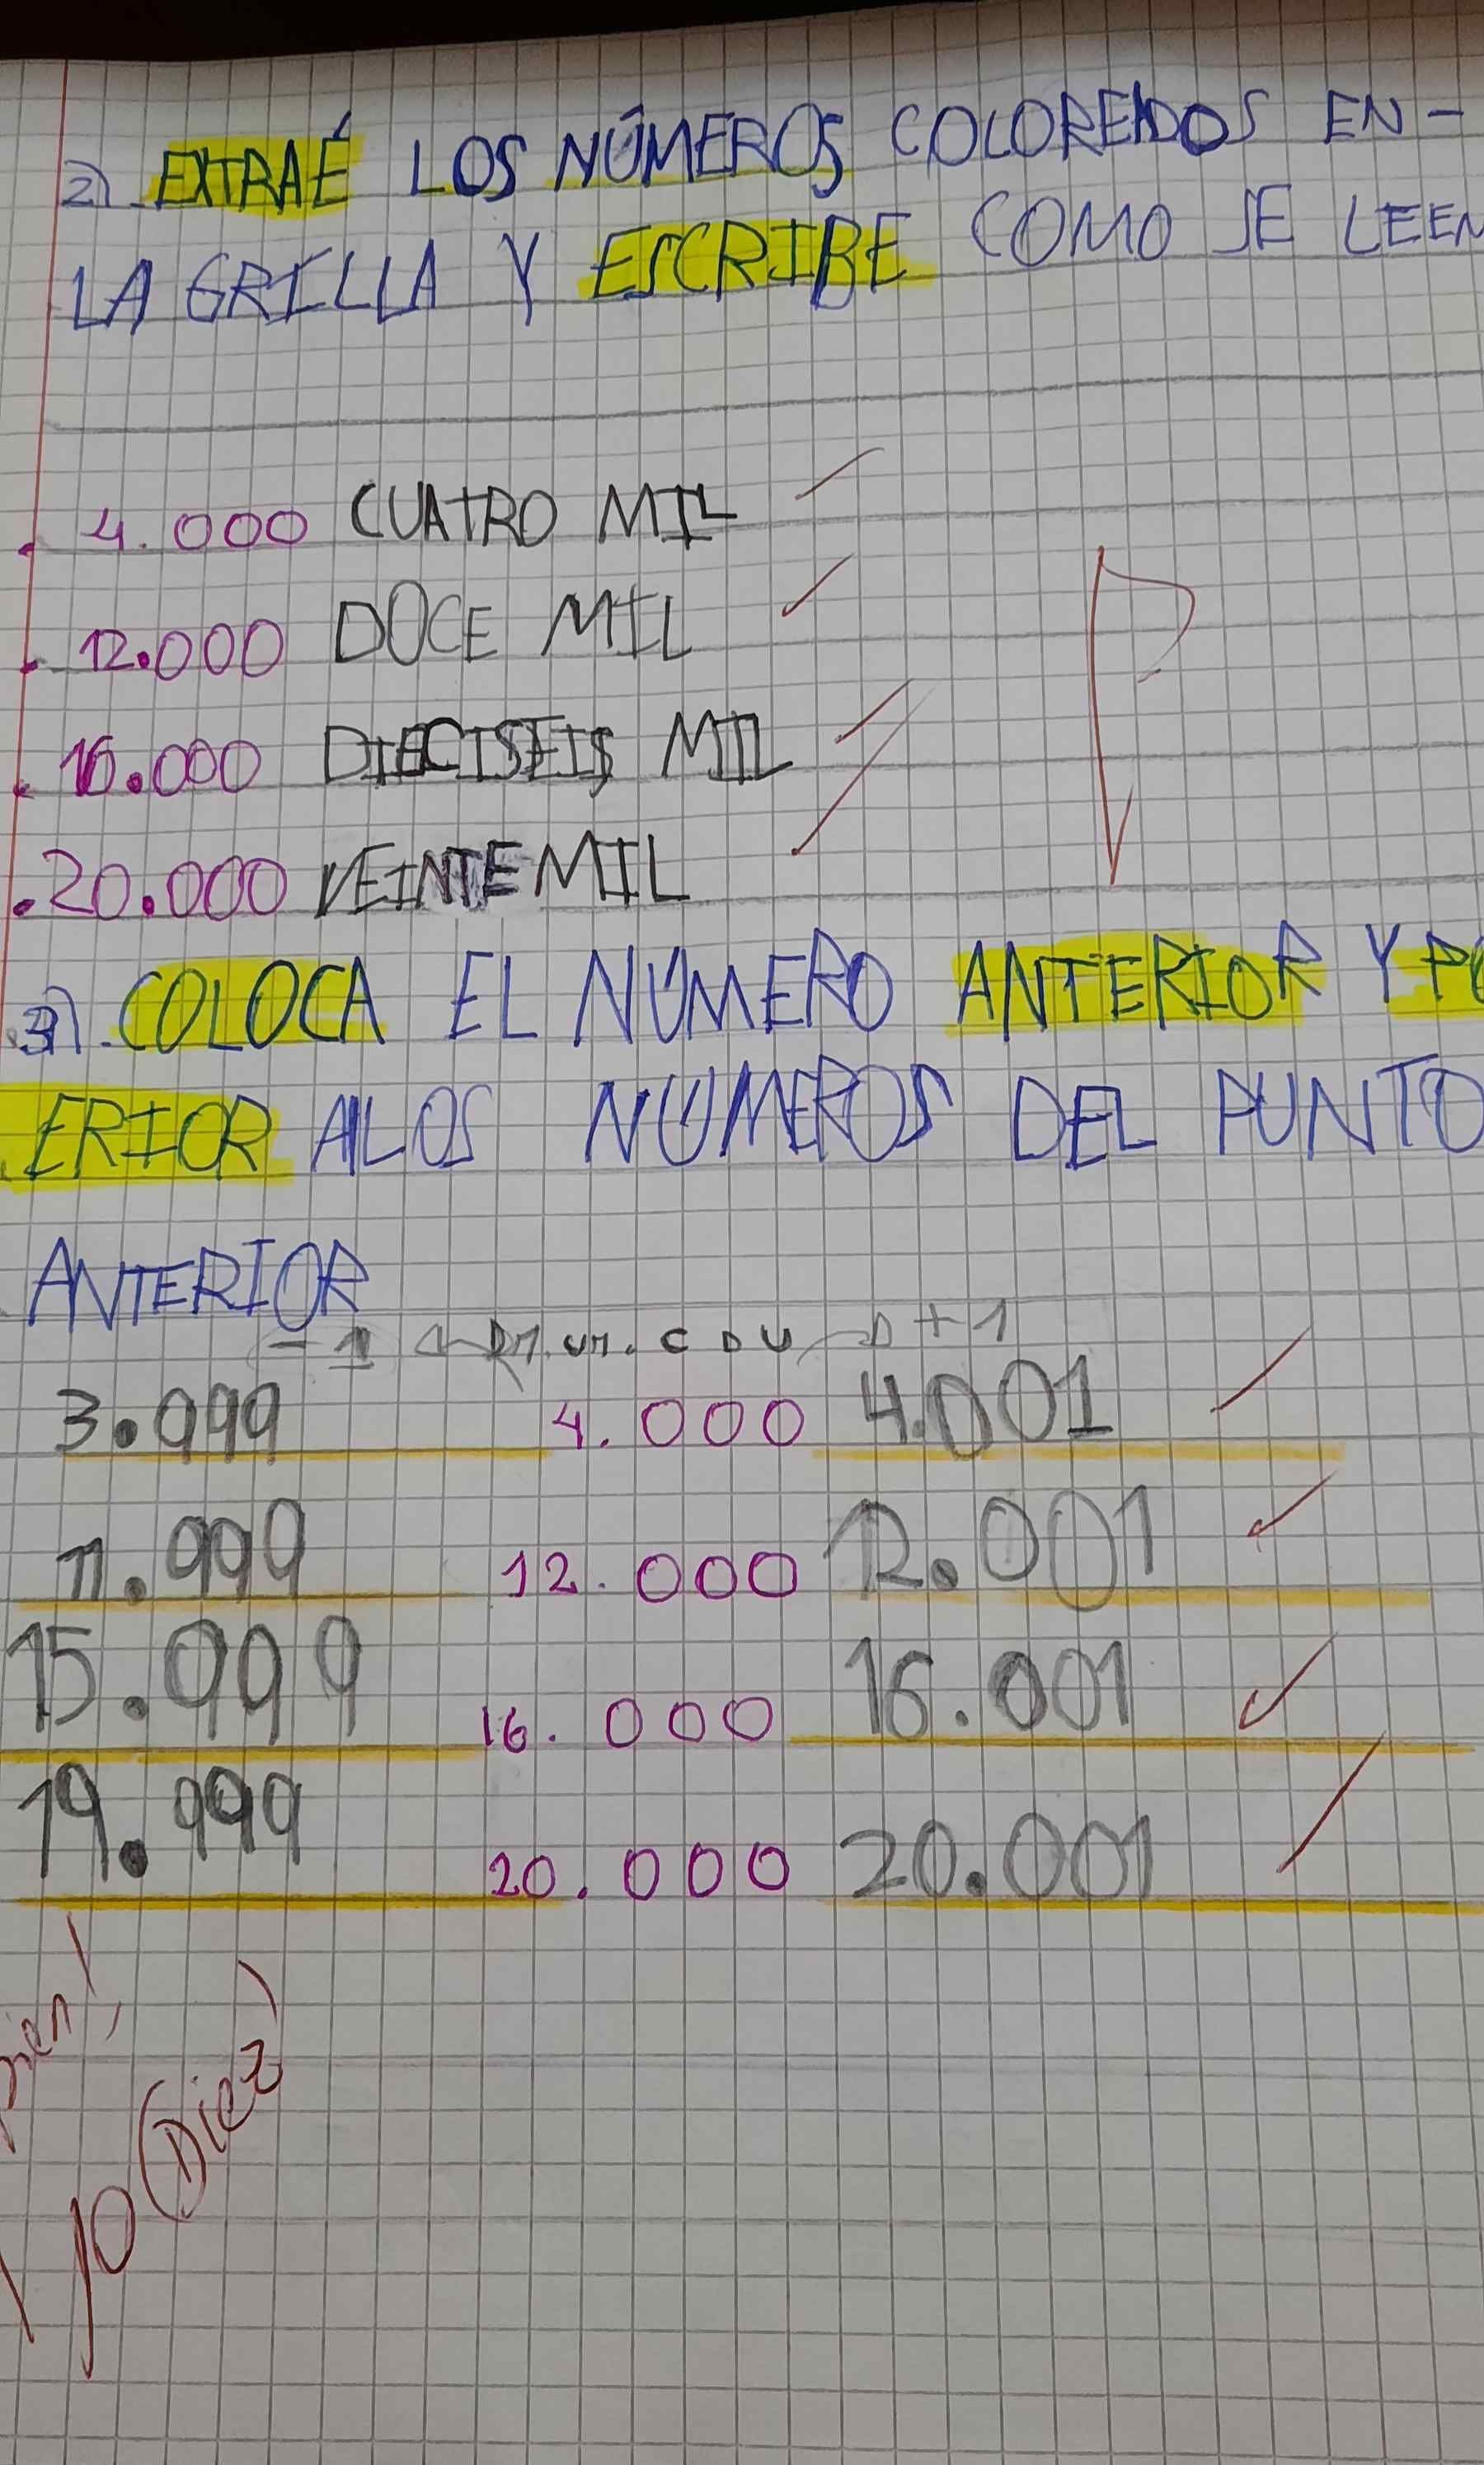 2) EXTRAÉ LOS NÚMEROS COLOREADOS EN-
LA GRILLA Y ESCRIBE COMO SE LEEN
. 4.000 CUATRO MIL
. 12.000 DOCE MIL
. 16.000 DIECISEIS MIL
. 20.000 VEINTE MIL
3) COLOCA EL NÚMERO ANTERIOR Y PO
ERIOR A LOS NÚMEROS DEL PUNTO
ANTERIOR
- 1 DM. UM. C D U + 1
3.999 4.000 4.001
11.999 12.000 12.001
15.999 16.000 16.001
19.999 20.000 20.001
bien!
10 (Diez)